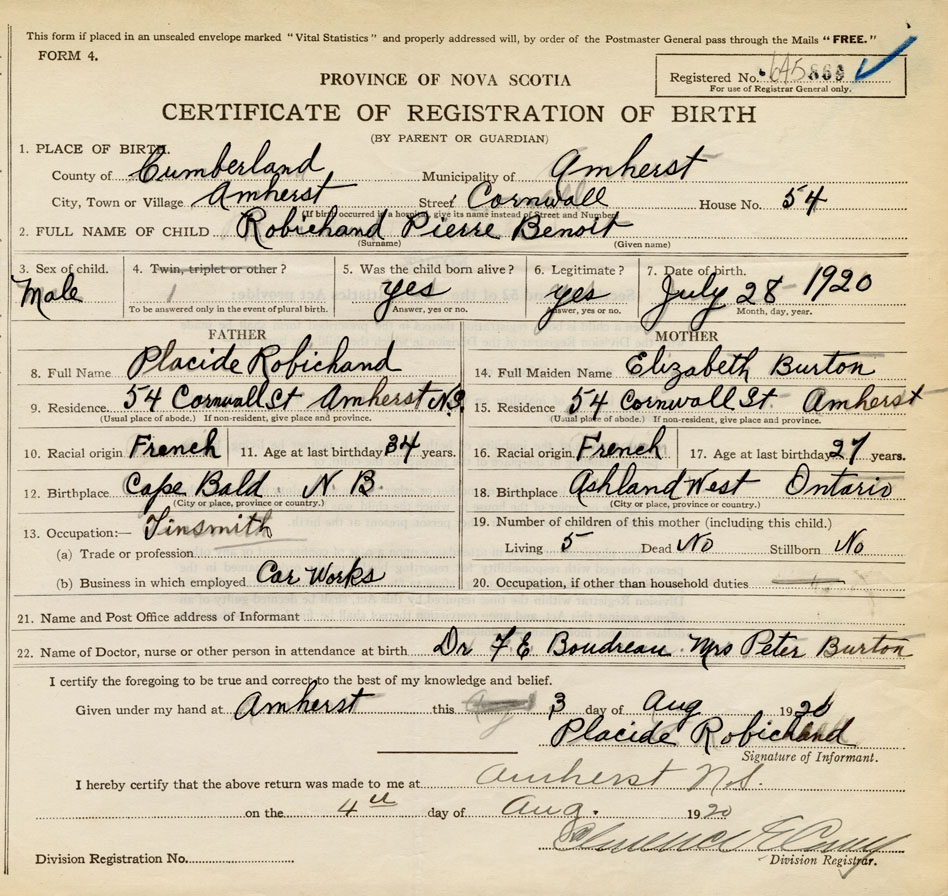 This form if placed in an unsealed envelope marked "Vital Statistics" and properly addressed will, by order of the Postmaster General pass through the Mails "FREE."
FORM 4.
PROVINCE OF NOVA SCOTIA
Registered No.
For use of Registrar General only.
CERTIFICATE OF REGISTRATION OF BIRTH
(BY PARENT OR GUARDIAN)
1. PLACE OF BIRTH.
County of Cumberland Municipality of Amherst
City, Town or Village Amherst Street Cornwall House No. 54
(If birth occurred in a hospital, give its name instead of Street and Number)
2. FULL NAME OF CHILD Robichand Pierre Benoit
(Surname) (Given name)
3. Sex of child. 4. Twin, triplet or other? 5. Was the child born alive? 6. Legitimate? 7. Date of birth.
Male yes yes July 28 1920
To be answered only in the event of plural birth. Answer, yes or no. Answer, yes or no. Month, day, year.
FATHER MOTHER
8. Full Name Placide Robichand 14. Full Maiden Name Elizabeth Burton
9. Residence 54 Cornwall St Amherst N.S. 15. Residence 54 Cornwall St. Amherst
(Usual place of abode.) If non-resident, give place and province. (Usual place of abode.) If non-resident, give place and province.
10. Racial origin French 11. Age at last birthday 34 years. 16. Racial origin French 17. Age at last birthday 27 years.
12. Birthplace Cape Bald N B. 18. Birthplace Ashland West Ontario
(City or place, province or country.) (City or place, province or country.)
13. Occupation:— Tinsmith 19. Number of children of this mother (including this child.)
(a) Trade or profession Living 5 Dead No Stillborn No
(b) Business in which employed Car Works 20. Occupation, if other than household duties
21. Name and Post Office address of Informant
22. Name of Doctor, nurse or other person in attendance at birth Dr F E Boudreau Mrs Peter Burton
I certify the foregoing to be true and correct to the best of my knowledge and belief.
Given under my hand at Amherst this 3 day of Aug 1920
Placide Robichand
Signature of Informant.
I hereby certify that the above return was made to me at Amherst N.S.
on the 4th day of Aug. 1920
Division Registrar.
Division Registration No.